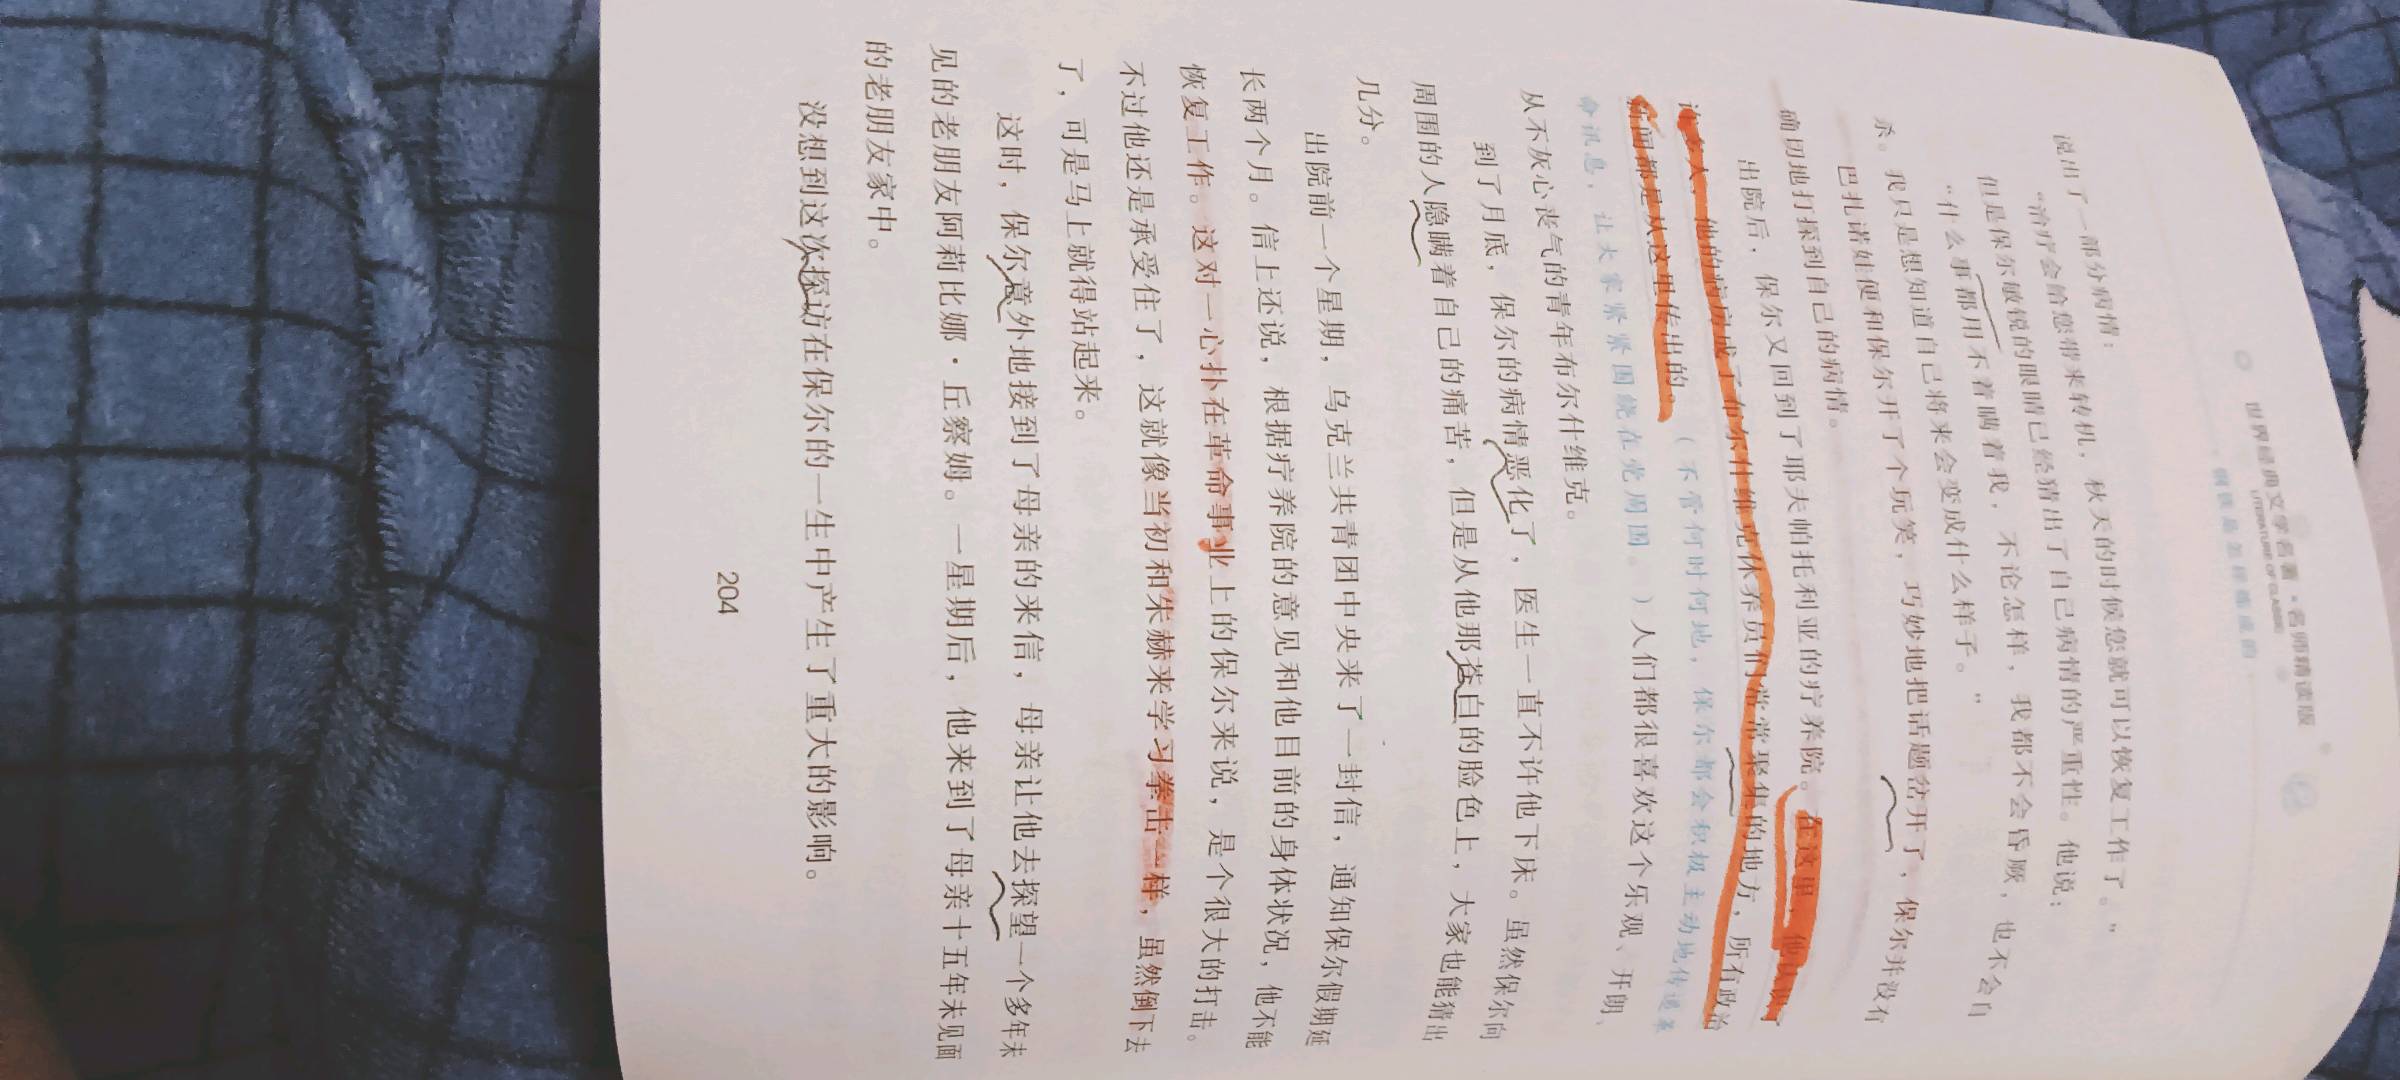 世界经典文学名著·名师精读版
LITERATURE OF CLASSIC
钢铁是怎样炼成的
说出了一部分病情：
“治疗会给您带来转机，秋天的时候您就可以恢复工作了。”
但是保尔敏锐的眼睛已经猜出了自己病情的严重性。他说：
“什么事都用不着瞒着我，不论怎样，我都不会昏厥，也不会自
杀。我只是想知道自己将来会变成什么样子。”
巴扎诺娃便和保尔开了个玩笑，巧妙地把话题岔开了，保尔并没有
确切地打探到自己的病情。
出院后，保尔又回到了耶夫帕托利亚的疗养院。在这里，他认识了
许多人，他的病房成了布尔什维克休养员们常常聚集的地方，所有政治
新闻都是从这里传出的。（不管何时何地，保尔都会积极主动地传递革
命讯息，让大家紧紧围绕在党周围。）人们都很喜欢这个乐观、开朗、
从不灰心丧气的青年布尔什维克。
到了月底，保尔的病情恶化了，医生一直不许他下床。虽然保尔向
周围的人隐瞒着自己的痛苦，但是从他那苍白的脸色上，大家也能猜出
几分。
出院前一个星期，乌克兰共青团中央来了一封信，通知保尔假期延
长两个月。信上还说，根据疗养院的意见和他目前的身体状况，他不能
恢复工作。这对一心扑在革命事业上的保尔来说，是个很大的打击。
不过他还是承受住了，这就像当初和朱赫来学习拳击一样，虽然倒下去
了，可是马上就得站起来。
这时，保尔意外地接到了母亲的来信，母亲让他去探望一个多年未
见的老朋友阿莉比娜·丘察姆。一星期后，他来到了母亲十五年未见面
的老朋友家中。
没想到这次探访在保尔的一生中产生了重大的影响。
204